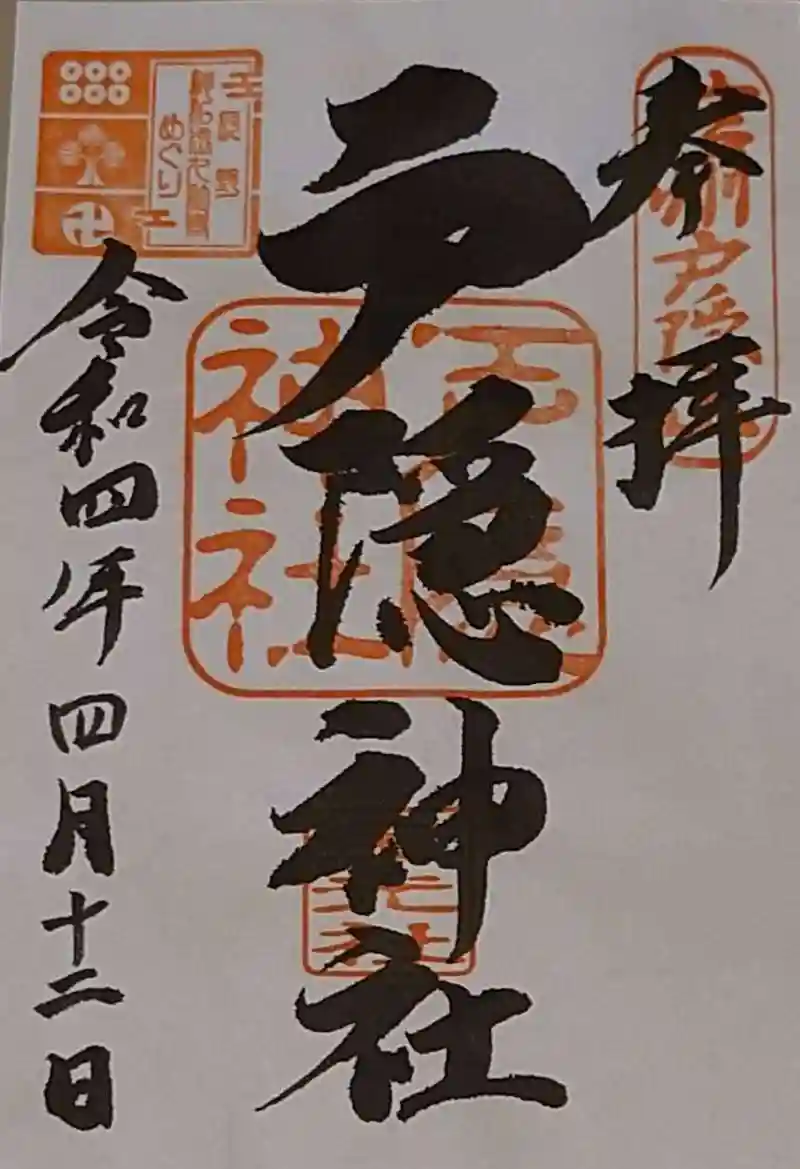 奉拝
信州戸隠山
戸隠神社
戸隠神社
令和四年四月十二日
長野
めぐり